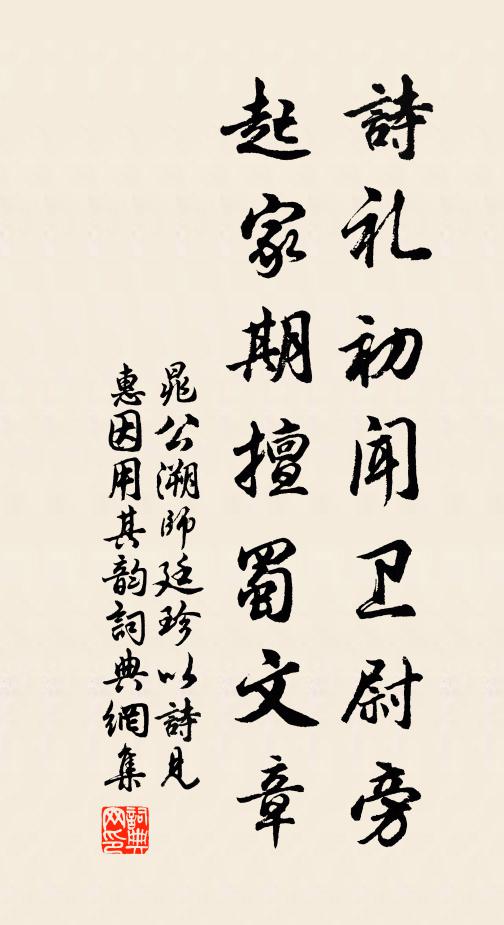 詩礼初闻卫尉旁
起家期擅蜀文章
晁公溯師廷珍以詩見
惠因用其韵詞典網集
詞典
网